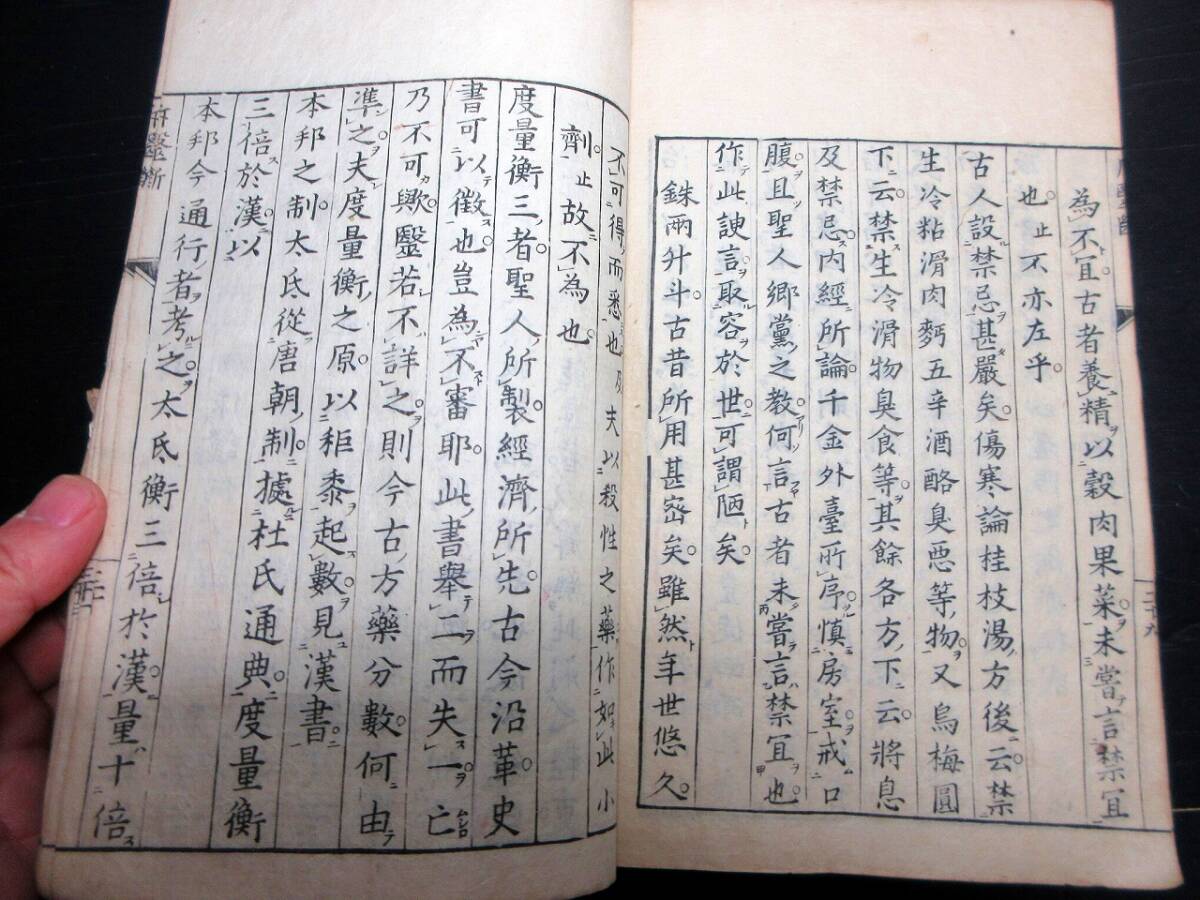 為不宜古者養精以穀肉果菜未嘗言禁宜
也止不亦左乎
古人設禁忌甚嚴矣傷寒論桂枝湯方後云禁
生冷粘滑肉麪五辛酒酪臭悪等物又烏梅圓
下云禁生冷滑物臭食等其餘各方下云將息
及禁忌内經所論千金外臺所序慎房室戒口
腹且聖人鄉黨之教何言古者未嘗言禁宜也
作此諛言取容於世可謂陋矣
銖兩升斗古昔所用甚宻矣雖然年世悠久
不可得而悉也及夫以殺性之藥作如此小
劑止故不為也
度量衡三者聖人所製經濟所先古今沿革史
書可以徵也豈為不審耶此書舉二而失一亡
乃不可歟毉若不詳之則今古方藥分數何由
凖之夫度量衡之原以秬黍起數見漢書
本邦之制太氐從唐朝制據杜氏通典度量衡
三倍於漢以
本邦今通行者考之太氐衡三倍於漢量十倍
斥毉斷